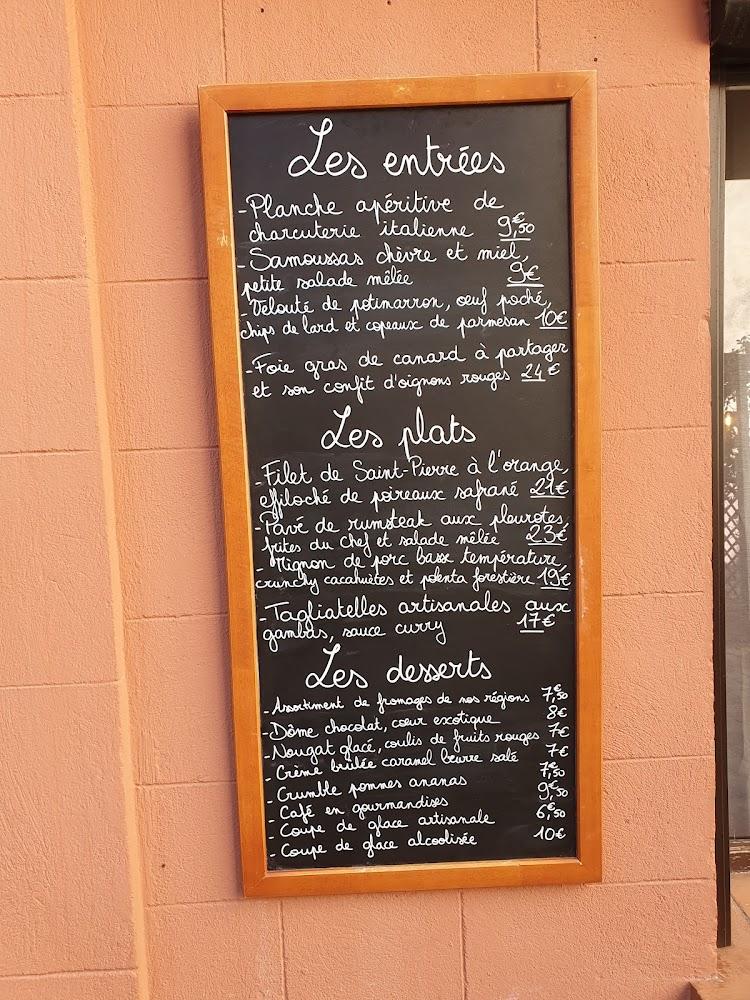 Les entrées
- Planche apéritive de
charcuterie italienne 9€,50
- Samoussas chèvre et miel,
petite salade mêlée 9€
- Velouté de potimarron, oeuf poché,
chips de lard et copeaux de parmesan 10€
- Foie gras de canard à partager
et son confit d'oignons rouges 24€
Les plats
- Filet de Saint-Pierre à l'orange,
effiloché de poireaux safrané 21€
- Pavé de rumsteak aux pleurotes,
frites du Chef et salade mêlée 23€
- Mignon de porc basse température,
crunchy cacahuètes et polenta forestière 19€
- Tagliatelles artisanales aux
gambas, sauce curry 17€
Les desserts
- Assortiment de fromages de nos régions 7€,50
- Dôme chocolat, coeur exotique 8€
- Nougat glacé, coulis de fruits rouges 7€
- Crème brûlée caramel beurre salé 7€
- Crumble pommes ananas 7€,50
- Café en gourmandises 9€,50
- Coupe de glace artisanale 6€,50
- Coupe de glace alcoolisée 10€